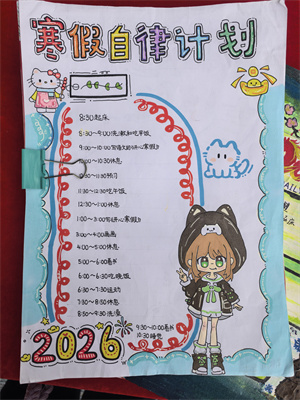 寒假自律计划
8:30起床
8:30~9:00洗漱和吃早饭
9:00~10:00写语文的开心寒假
10:30休息
11:30预习
11:30~12:30吃午饭
12:30~1:00休息
1:00~3:00写开心寒假
3:00~4:00画画
4:00~5:00休息
5:00~6:00看书
6:00~6:30吃晚饭
6:30~7:30运动
7:30~8:50休息
8:50~9:30洗澡
9:30~10:00看书
10:30睡觉
2026